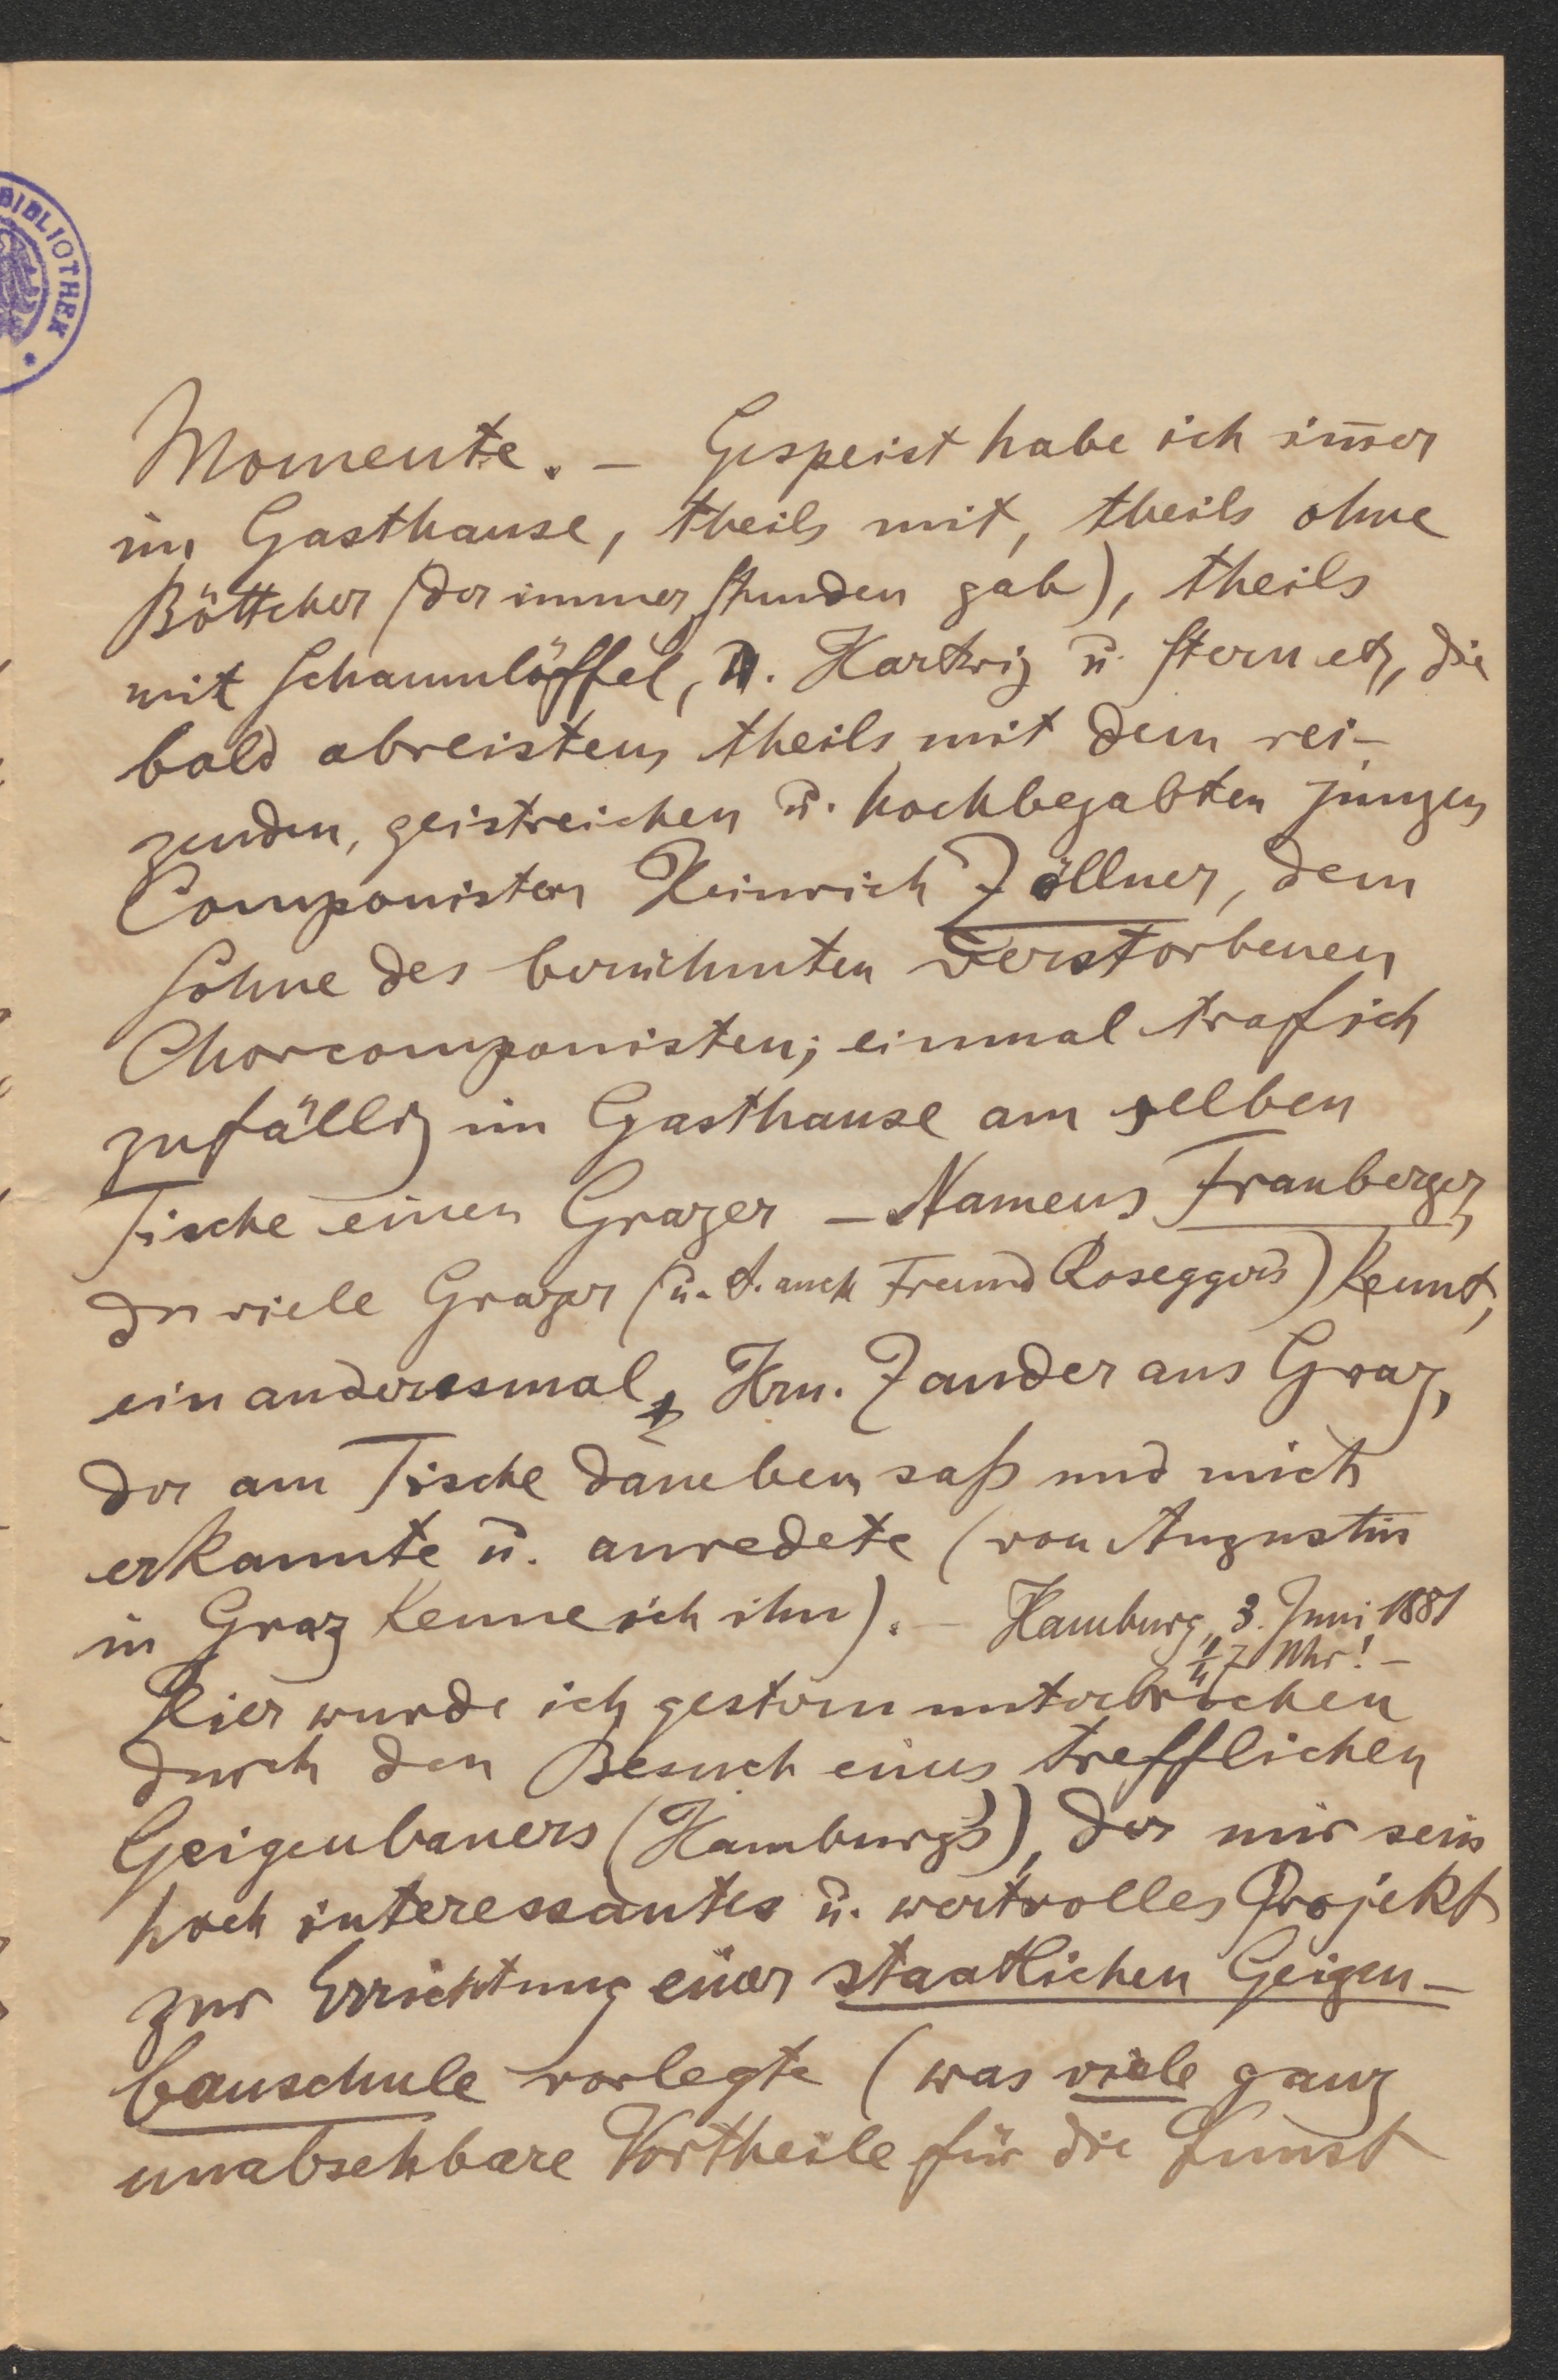 BIBLIOTHEK
Momente. – Gespeist habe ich im̅er
im Gasthause, theils mit, theils ohne
Böttcher (der immer Stunden gab), theils
mit Schaumlöffel, D. Hartwig u. Stern etz, die
bald abreisten, theils mit dem rei-
zenden, geistreichen u. hochbegabten jungen
Componisten Heinrich Zöllner, dem
Sohne des berühmten verstorbenen
Chorcomponisten; einmal traf ich
zufällig im Gasthause am selben
Tische einen Grazer – Namens Franberger,
der viele Grazer (u. A. auch Freund Rosegger's) kennt,
ein anderesmal, Hrn. Zander aus Graz,
der am Tische daneben saß und mich
erkannte u. anredete (von Augustin
in Graz kenne ich ihn). – Hamburg, 3. Juni 1881
1/4 7 Uhr! –
Hier wurde ich gestern unterbrochen
durch den Besuch eines trefflichen
Geigenbauers (Hamburg's), der mir sein
hoch interessantes u. wertvolles Projekt
zur Errichtung einer staatlichen Geigen-
bauschule vorlegte (was viele ganz
unabsehbare Vortheile für die Kunst